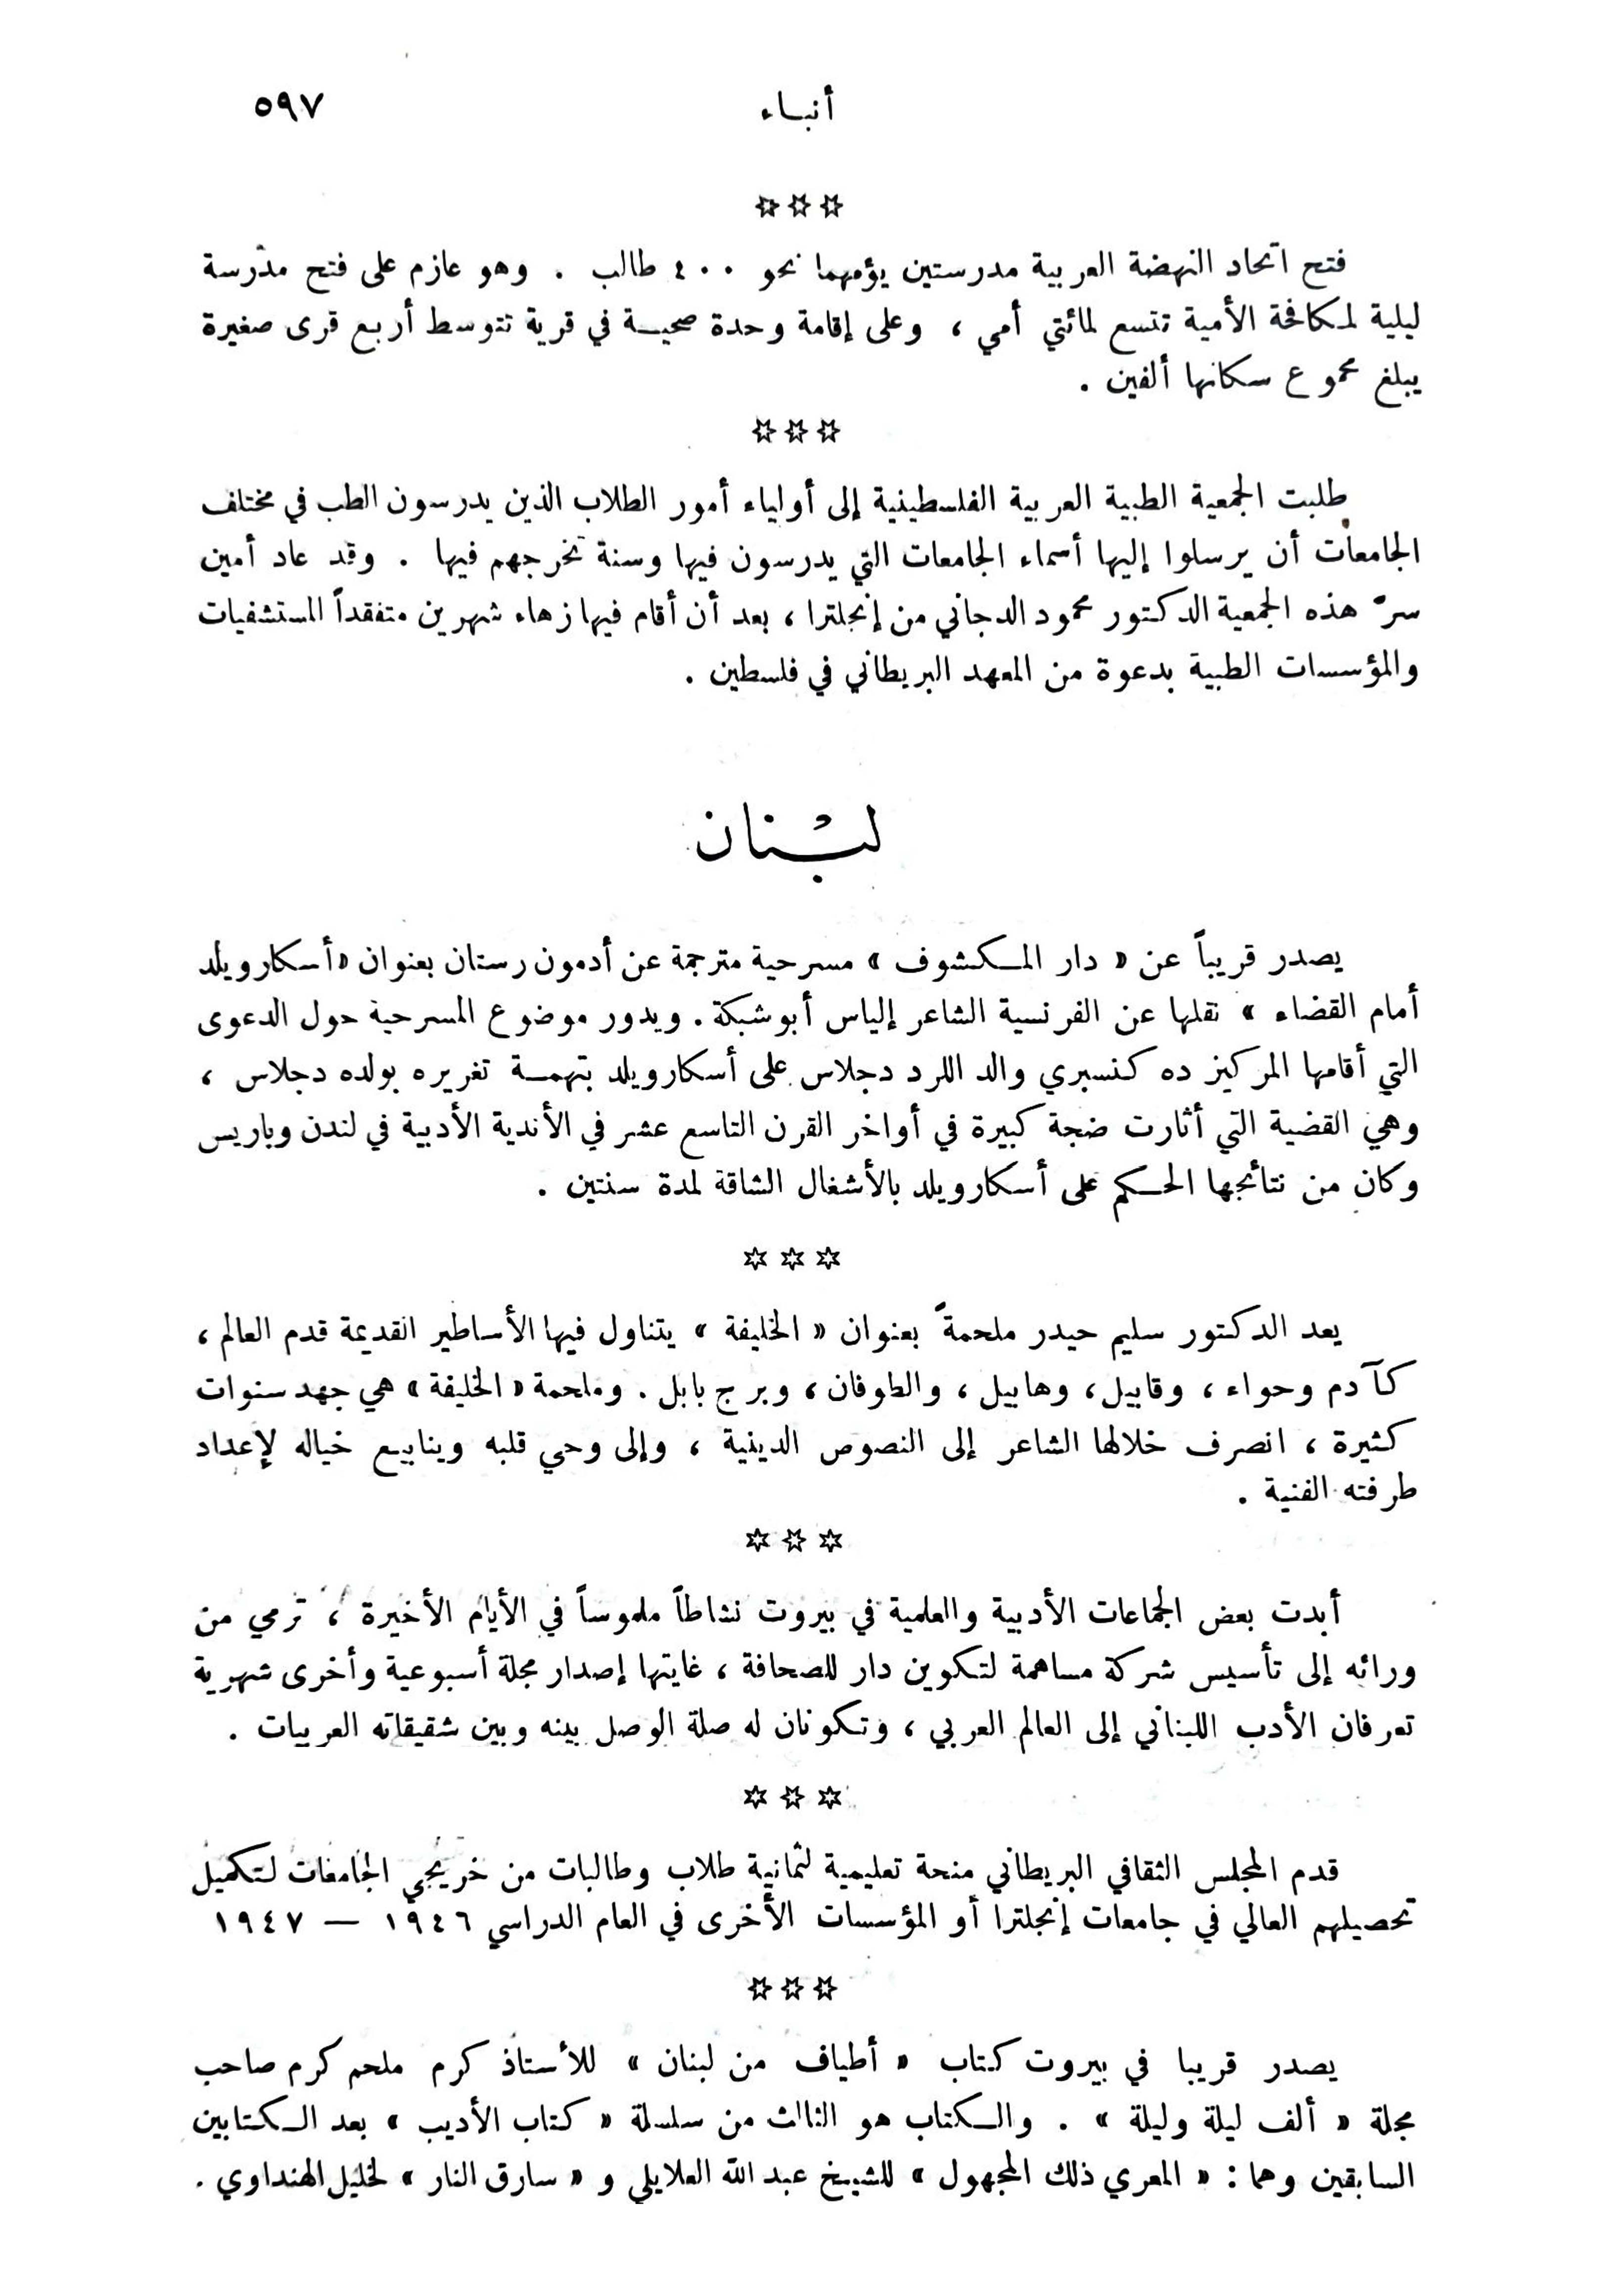 أنباء ٥٩٧
***
فتح اتحاد النهضة العربية مدرستين يؤمهما نحو ٤٠٠ طالب . وهو عازم على فتح مدرسة
ليلية لمكافحة الأمية تتسع لمائتي أمي ، وعلى إقامة وحدة صحية في قرية تتوسط أربع قرى صغيرة
يبلغ مجموع سكانها ألفين .
***
طلبت الجمعية الطبية العربية الفلسطينية إلى أولياء أمور الطلاب الذين يدرسون الطب في مختلف
الجامعات أن يرسلوا إليها أسماء الجامعات التي يدرسون فيها وسنة تخرجهم فيها . وقد عاد أمين
سرّ هذه الجمعية الدكتور محمود الدجاني من إنجلترا ، بعد أن أقام فيها زهاء شهرين متفقداً المستشفيات
والمؤسسات الطبية بدعوة من المعهد البريطاني في فلسطين .
لبْنان
يصدر قريباً عن « دار المكشوف » مسرحية مترجمة عن أدمون رستان بعنوان « أسكار ويلد
أمام القضاء » نقلها عن الفرنسية الشاعر إلياس أبو شبكة . ويدور موضوع المسرحية حول الدعوى
التي أقامها المركيز ده كنسبري والد اللرد دجلاس على أسكار ويلد بتهمة تغريره بولده دجلاس ،
وهي القضية التي أثارت ضجة كبيرة في أواخر القرن التاسع عشر في الأندية الأدبية في لندن وباريس
وكان من نتائجها الحكم على أسكار ويلد بالأشغال الشاقة لمدة سنتين .
***
يعد الدكتور سليم حيدر ملحمةً بعنوان « الخليفة » يتناول فيها الأساطير القديمة قدم العالم ،
كآدم وحواء ، وقابيل ، وهابيل ، والطوفان ، وبرج بابل . وملحمة « الخليفة » هي جهد سنوات
كثيرة ، انصرف خلالها الشاعر إلى النصوص الدينية ، وإلى وحي قلبه وينابيع خياله لإعداد
طرفته الفنية .
***
أبدت بعض الجماعات الأدبية والعلمية في بيروت نشاطاً ملموساً في الأيام الأخيرة ، ترمي من
ورائه إلى تأسيس شركة مساهمة لتكوين دار للصحافة ، غايتها إصدار مجلة أسبوعية وأخرى شهرية
تعرفان الأدب اللبناني إلى العالم العربي ، وتكونان له صلة الوصل بينه وبين شقيقاته العربيات .
***
قدم المجلس الثقافي البريطاني منحة تعليمية لثمانية طلاب وطالبات من خريجي الجامعات لتكميل
تحصيلهم العالي في جامعات إنجلترا أو المؤسسات الأخرى في العام الدراسي ١٩٤٦ — ١٩٤٧
***
يصدر قريبا في بيروت كتاب « أطياف من لبنان » للأستاذ كرم ملحم كرم صاحب
مجلة « ألف ليلة وليلة » . والكتاب هو الثالث من سلسلة « كتاب الأديب » بعد الكتابين
السابقين وهما : « المعري ذلك المجهول » للشيخ عبد الله العلايلي و « سارق النار » لخليل الهنداوي .